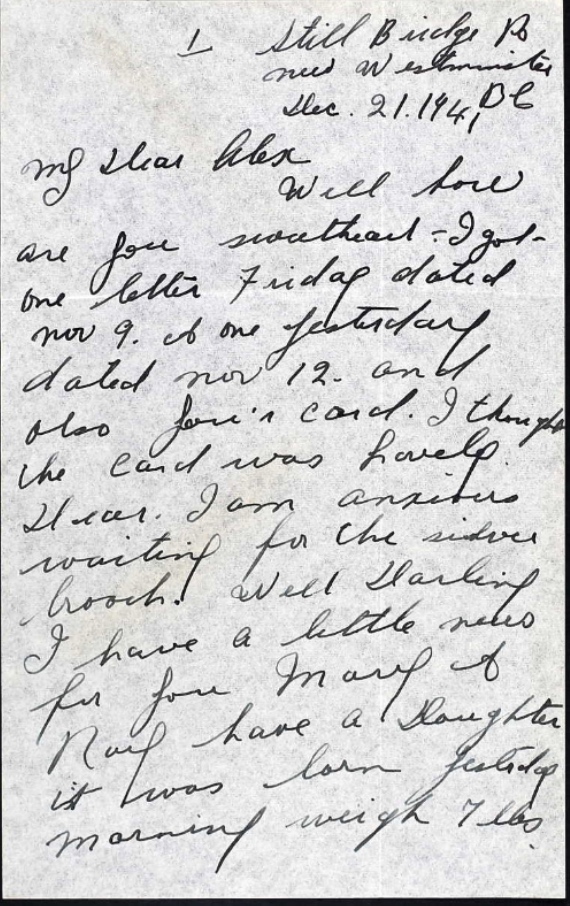 1 Still Bridge Rd
New Westminster
Dec. 21. 1941 BC
My Dear Alex
Well how
are you sweetheart - I got
one letter Friday dated
Nov 9. & one yesterday
dated Nov 12. and
also you's card. I thought
the card was lovely
Dear. I am anxious
waiting for the silver
brooch. Well Darling
I have a little news
for you Mary &
Ray have a Daughter
it was born yesterday
morning weigh 7 lbs.